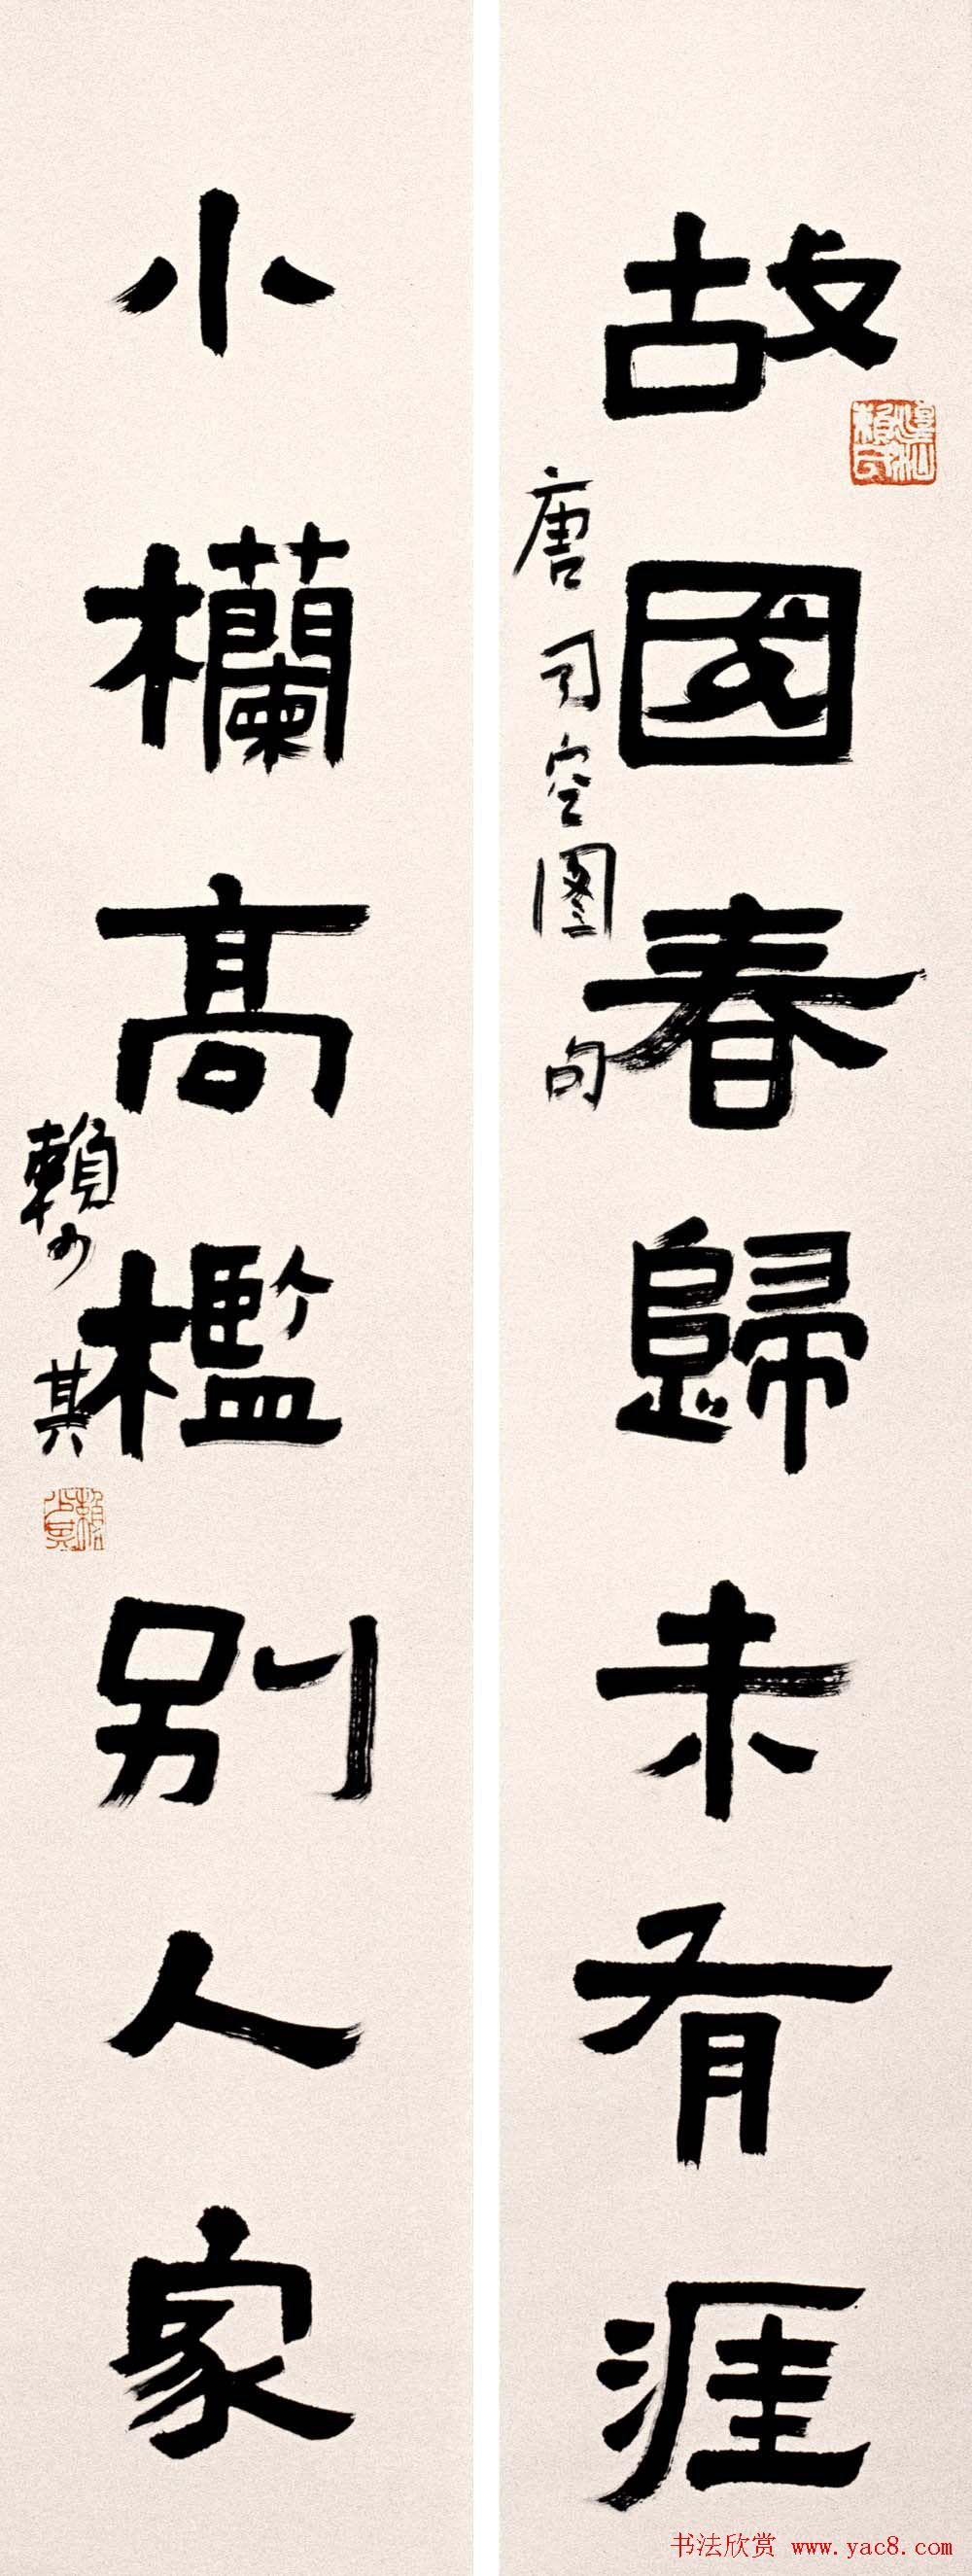 故國春歸未有涯
唐司空圖句
小欄高檻別人家
賴少其
賴少其
书法欣赏 www.yac8.com